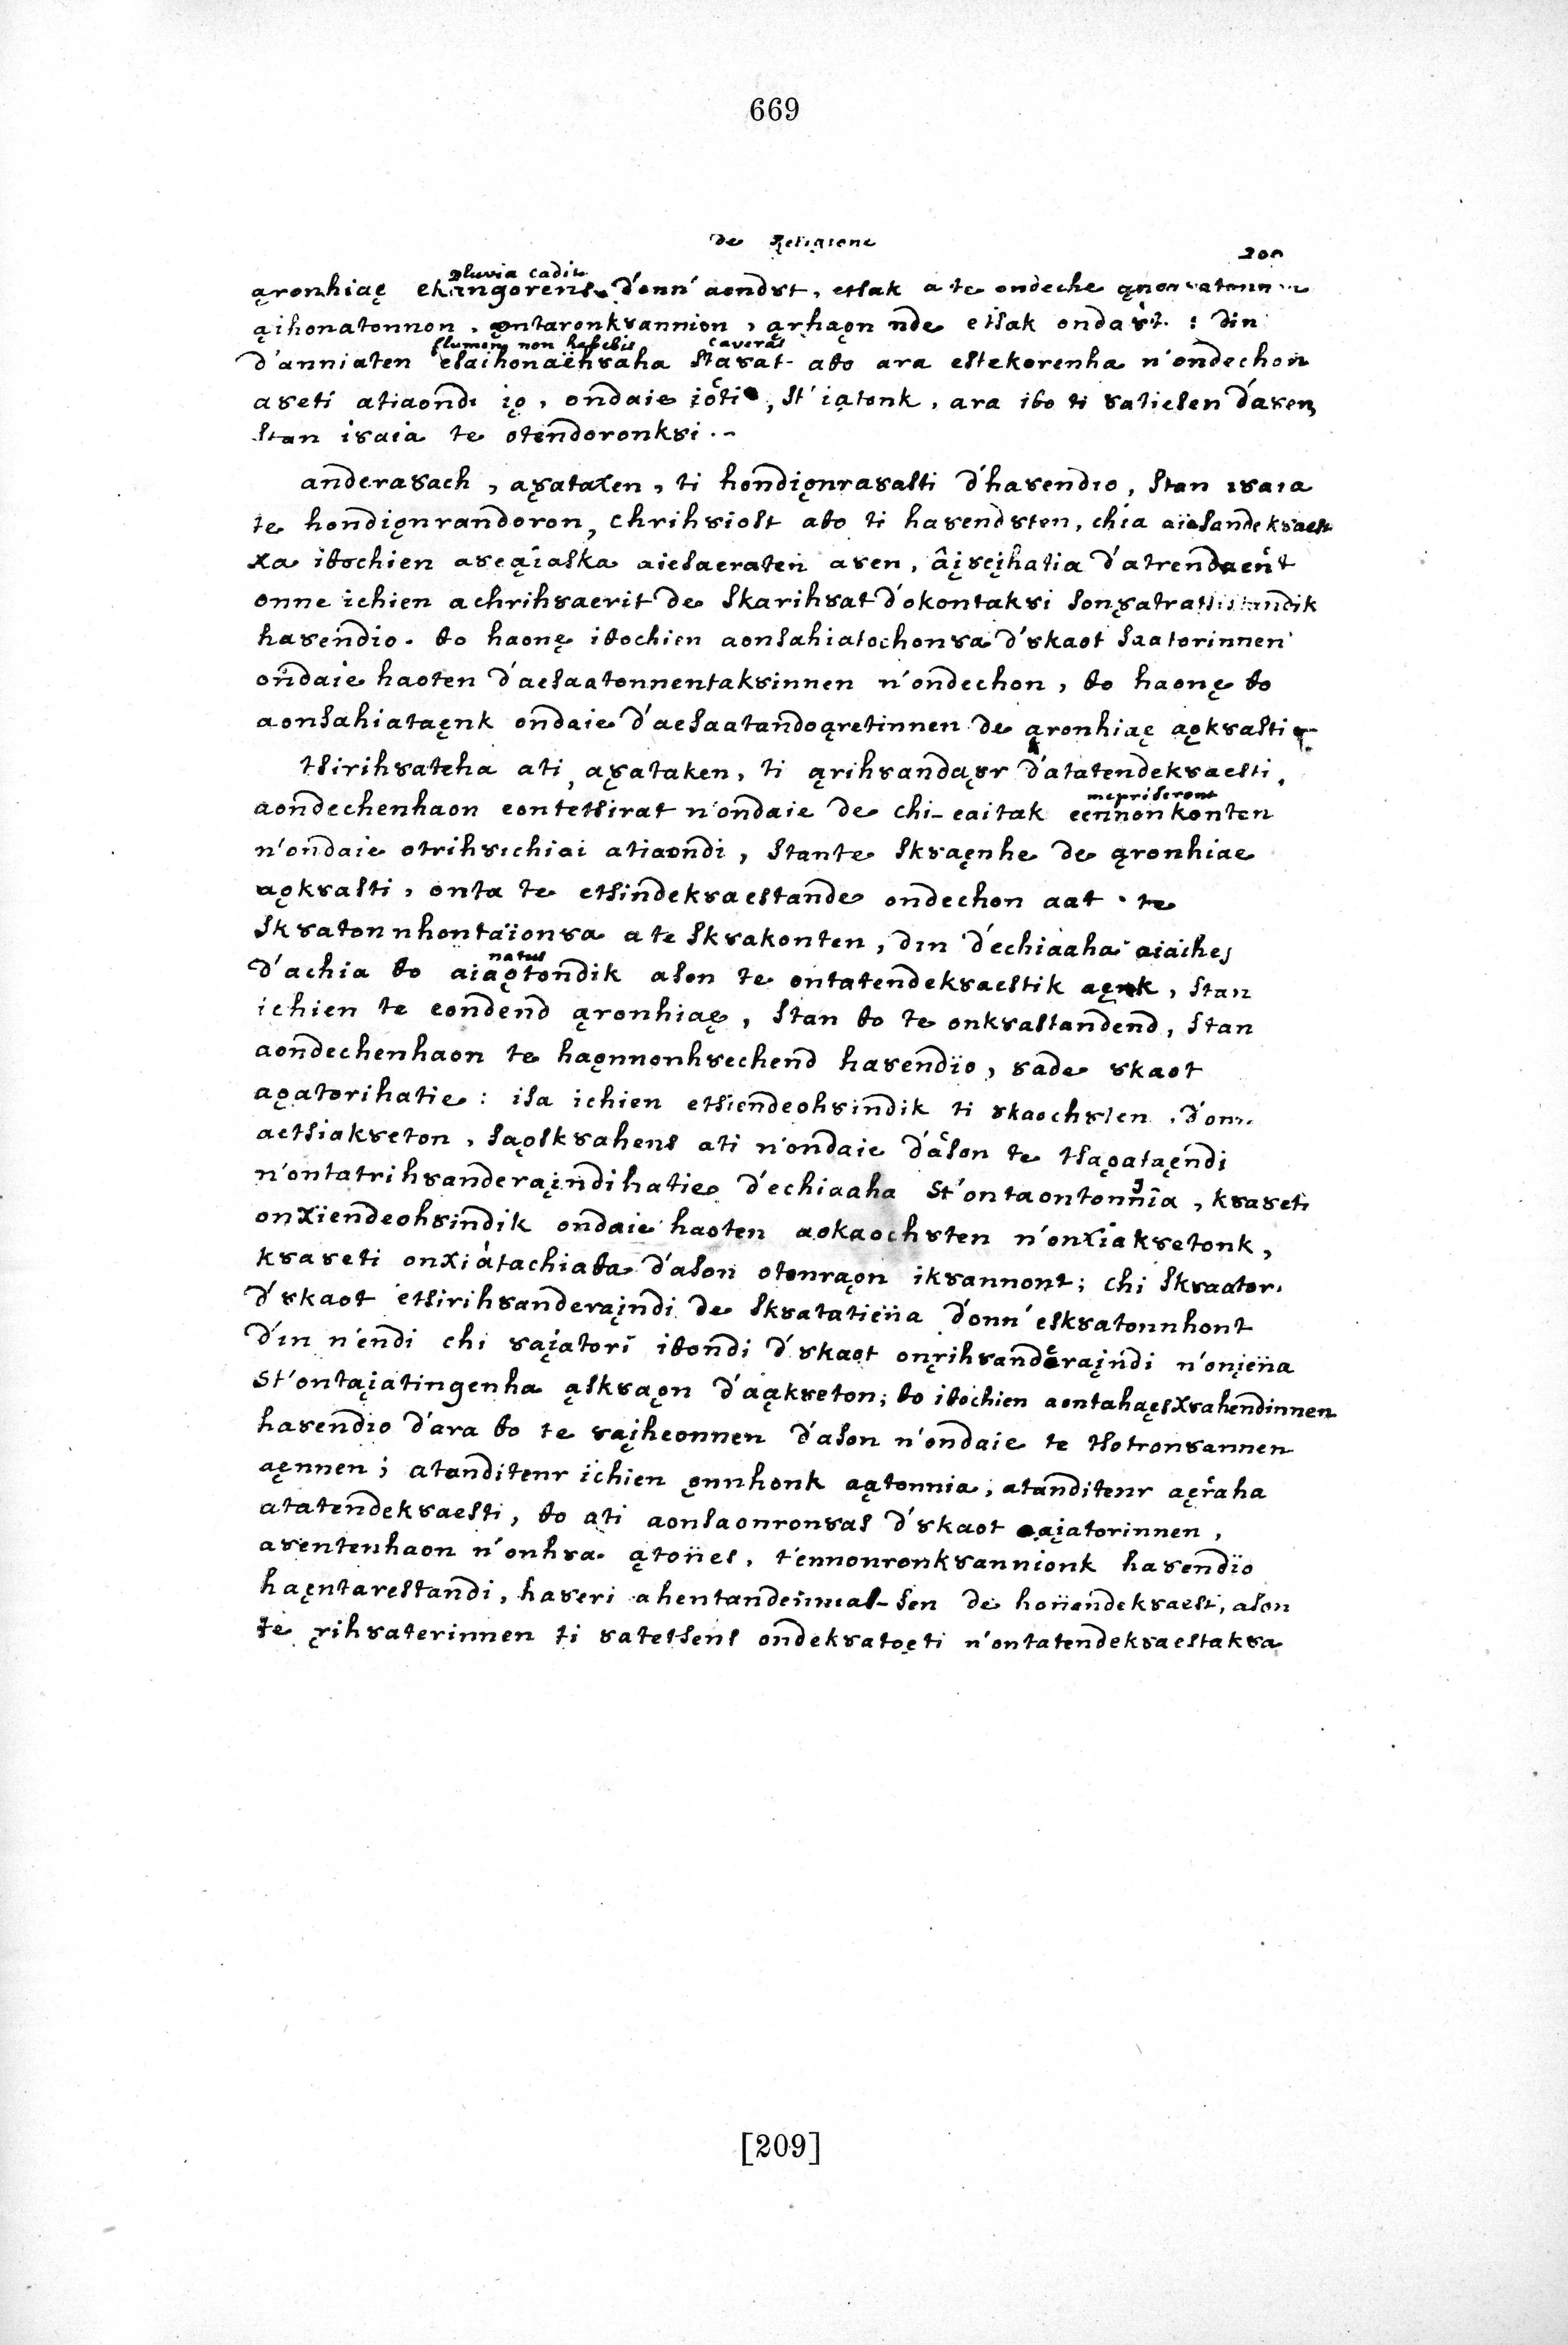 669
de Religione
209
pluvia cadit
ąronhiaę ekangorens d'onn' aondȣt, etsak a te ondeche
ąihonatonnon, ǫntaronkȣannion, ąrhaǫn nde etsak ondaȣt : din
flumen non habebis caveras
d'anniaten esaihonaënȣaha staȣat aƟo ara estekorenha n'ondechon
aȣeti atiaondi iǫ, ondaie ioti, st' iątonk, ara iƟo ti ȣatiesen d'aȣen,
stan iȣaia te otendoronkȣi.-
anderaȣach, aȣataxen, ti hondiǫnraȣasti d'haȣendio, stan ȣaia
te hondiǫnrandoron, chrihȣiost aƟo ti haȣendȣten, chia aiesandekȣaest
xa iƟochien aȣeąiaska aiesaeraten aȣen, âįȣeįhatia d'atrendaent
onne ichien achrihȣaerit de skarihȣat d'okontakȣi
haȣendio. Ɵo haonę iƟochien aonsahiatochonȣa d'ȣkaot saatorinnen
ondaie haoten d'aesaatonnentakȣinnen n'ondechon, Ɵo haonę Ɵo
aonsahiataęnk ondaie d'aesaatandoąretinnen de ąronhiaę aǫkȣasti
tsirihȣateha ati, aȣataken, ti ąrihȣandaȣr d'atatendekȣaesti,
mepriseront
aondechenhaon eontetsirat n'ondaie de chi-eaitak eennonkonten
n'ondaie otrihȣichiai atiaondi, stante skȣaęnhe de ąronhiae
aǫkȣasti, onta te etsindekȣaestande ondechon aat . te
skȣatonnhontaïonȣa a te skȣakonten, din d'echiaaha aiaihej
natus
d'achia Ɵo aiaǫtondik ason te ontatendekȣaestik aęnk, stan
ichien te eondend ąronhiaę, stan Ɵo te onkȣastandend, stan
aondechenhaon te haǫnnonhȣechend haȣendïo, ȣade ȣkaot
aǫatorihatie : isa ichien etsiendeohȣindik ti ȣkaochȣten . d'onn
aetsiakȣeton, saǫskȣahens ati n'ondaie d'ason te tsaǫataęndi
n'ontatrihȣanderaįndihatie d'echiaaha st'ontaontonnia, kȣaȣeti
onxiendeohȣindik ondaie haoten aokaochȣten n'onxiakȣetonk,
kȣaȣeti onxiatachiaƟa d'ason otonraǫn ikȣannont; chi skȣaator.
d'ȣkaot etsirihȣanderaįndi de skȣatatieña d'onn' eskȣatonnhont
d'in n'endi chi ȣaįatori iƟondi d'ȣkaot onęrihȣanderaįndi n'onįeña
st'ontaįatingenha ąskȣaǫn d'aąkȣeton; Ɵo iƟochien aontahaęsxȣahendinnen
haȣendio d'ara Ɵo te ȣaįheonnen d'ason n'ondaie te tsotronȣannen
aęnnen; atanditenr ichien ǫnnhonk aątonnia, atanditenr aęraha
atatendekȣaesti, Ɵo ati aonsaonronȣas d'ȣkaot ȣaįatorinnen,
aȣentenhaon n'onhȣa ątoñes, t'ennonronkȣannionk haȣendïo
haęntarestandi, haȣeri sen de hoñendekȣaesti, ason
te ęrihȣaterinnen ti ȣatetsens ondekȣatoęti n'ontatendekȣaestakȣa
[209]